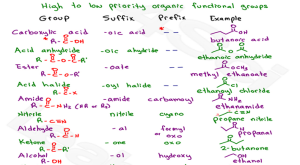 High to low priority organic functional groups
Group Suffix Prefix Example
Carboxylic acid -oic acid --
R-C-OH butanoic acid
Acid anhydride -oic ahydride --
R-C-O-C-R' ethanoic anhydride
Ester -oate --
R-C-O-R' methyl ethanoate
Acid halide -oyl halide --
R-C-X ethanoyl chloride
Amide -amide carbamoyl
R-C-NH₂ (HR or R₂) ethanamide
Nitrile nitrile cyano
R-C≡N propane nitrile
Aldehyde -al formyl
oxo propanal
Ketone -one oxo
2-butanone
Alcohol -ol hydroxy
R-OH ethanol